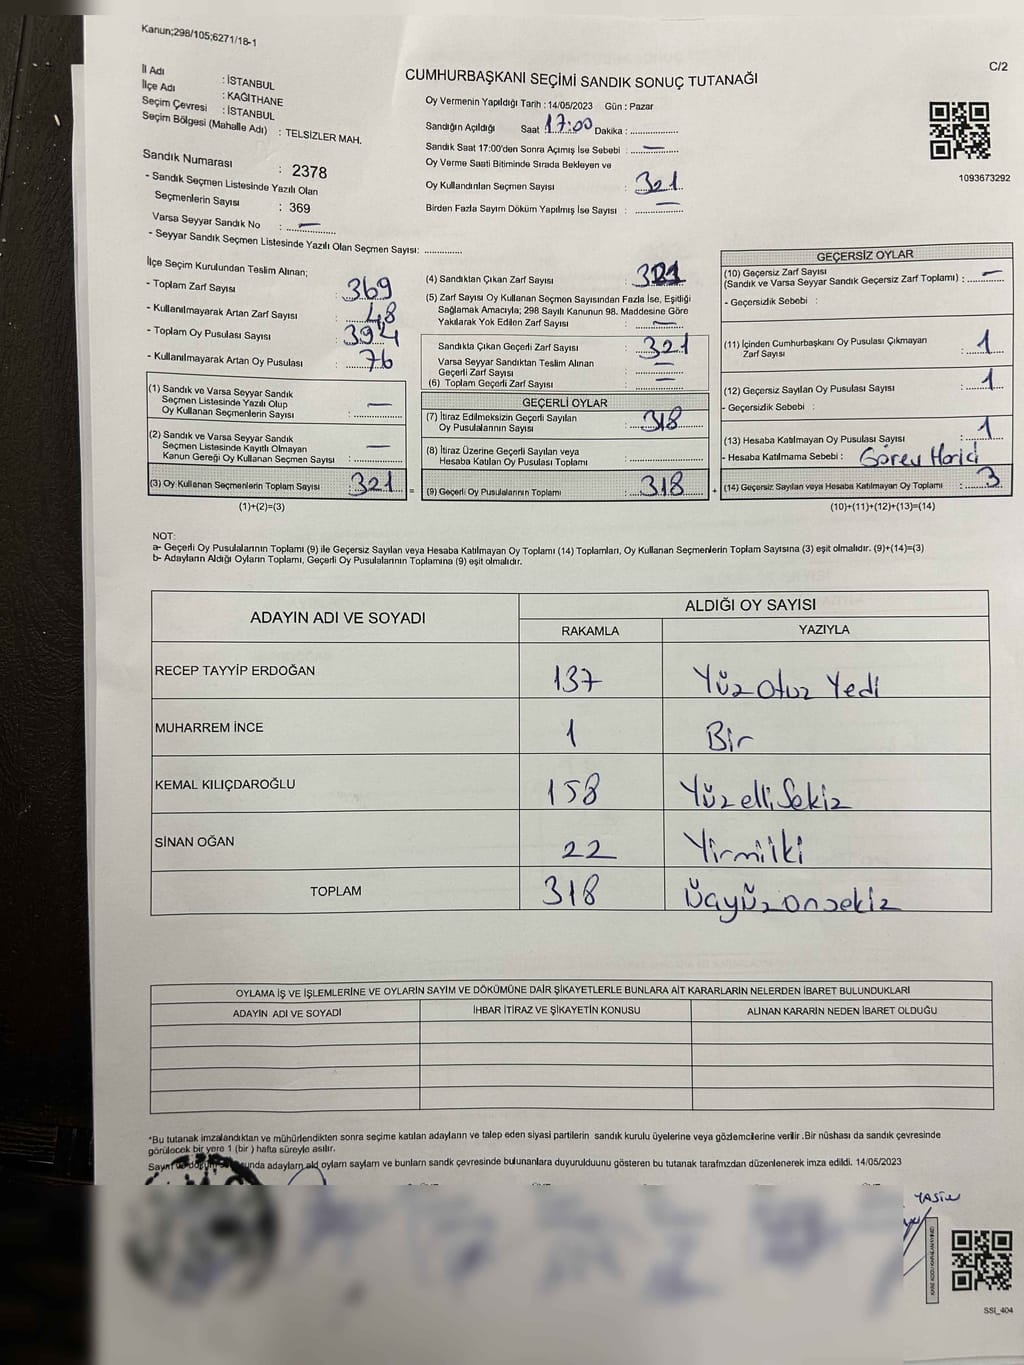 Kanun;298/105;6271/18-1
C/2
İl Adı : İSTANBUL
İlçe Adı : KAĞITHANE
Seçim Çevresi : İSTANBUL
Seçim Bölgesi (Mahalle Adı) : TELSİZLER MAH.
Sandık Numarası : 2378
- Sandık Seçmen Listesinde Yazılı Olan
Seçmenlerin Sayısı : 369
Varsa Seyyar Sandık No : —
- Seyyar Sandık Seçmen Listesinde Yazılı Olan Seçmen Sayısı: ..............
CUMHURBAŞKANI SEÇİMİ SANDIK SONUÇ TUTANAĞI
Oy Vermenin Yapıldığı Tarih : 14/05/2023 Gün : Pazar
Sandığın Açıldığı Saat 17:00 Dakika : ................
Sandık Saat 17:00'den Sonra Açımış İse Sebebi : —
Oy Verme Saati Bitiminde Sırada Bekleyen ve
Oy Kullandırılan Seçmen Sayısı : 321
Birden Fazla Sayım Döküm Yapılmış İse Sayısı : —
1093673292
İlçe Seçim Kurulundan Teslim Alınan;
- Toplam Zarf Sayısı : 369
- Kullanılmayarak Artan Zarf Sayısı : 48
- Toplam Oy Pusulası Sayısı : 394
- Kullanılmayarak Artan Oy Pusulası : 76
(1) Sandık ve Varsa Seyyar Sandık
Seçmen Listesinde Yazılı Olup
Oy Kullanan Seçmenlerin Sayısı : —
(2) Sandık ve Varsa Seyyar Sandık
Seçmen Listesinde Kayıtlı Olmayan
Kanun Gereği Oy Kullanan Seçmen Sayısı : —
(3) Oy Kullanan Seçmenlerin Toplam Sayısı : 321
(1)+(2)=(3)
=
(4) Sandıktan Çıkan Zarf Sayısı : 321
(5) Zarf Sayısı Oy Kullanan Seçmen Sayısından Fazla İse, Eşitliği
Sağlamak Amacıyla; 298 Sayılı Kanunun 98. Maddesine Göre
Yakılarak Yok Edilen Zarf Sayısı : —
Sandıkta Çıkan Geçerli Zarf Sayısı : 321
Varsa Seyyar Sandıktan Teslim Alınan
Geçerli Zarf Sayısı : —
(6) Toplam Geçerli Zarf Sayısı : —
GEÇERLİ OYLAR
(7) İtiraz Edilmeksizin Geçerli Sayılan
Oy Pusulalarının Sayısı : 318
(8) İtiraz Üzerine Geçerli Sayılan veya
Hesaba Katılan Oy Pusulası Toplamı : ................
(9) Geçerli Oy Pusulalarının Toplamı : 318
+
GEÇERSİZ OYLAR
(10) Geçersiz Zarf Sayısı
(Sandık ve Varsa Seyyar Sandık Geçersiz Zarf Toplamı) : —
- Geçersizlik Sebebi :
(11) İçinden Cumhurbaşkanı Oy Pusulası Çıkmayan
Zarf Sayısı : 1
(12) Geçersiz Sayılan Oy Pusulası Sayısı : 1
- Geçersizlik Sebebi :
(13) Hesaba Katılmayan Oy Pusulası Sayısı : 1
- Hesaba Katılmama Sebebi : Görev Harici
(14) Geçersiz Sayılan veya Hesaba Katılmayan Oy Toplamı : 3
(10)+(11)+(12)+(13)=(14)
NOT:
a- Geçerli Oy Pusulalarının Toplamı (9) ile Geçersiz Sayılan veya Hesaba Katılmayan Oy Toplamı (14) Toplamları, Oy Kullanan Seçmenlerin Toplam Sayısına (3) eşit olmalıdır. (9)+(14)=(3)
b- Adayların Aldığı Oyların Toplamı, Geçerli Oy Pusulalarının Toplamına (9) eşit olmalıdır.
ADAYIN ADI VE SOYADI
ALDIĞI OY SAYISI
RAKAMLA YAZIYLA
RECEP TAYYİP ERDOĞAN 137 Yüz Otuz Yedi
MUHARREM İNCE 1 Bir
KEMAL KILIÇDAROĞLU 158 Yüz elli Sekiz
SİNAN OĞAN 22 Yirmi iki
TOPLAM 318 Üçyüz onsekiz
OYLAMA İŞ VE İŞLEMLERİNE VE OYLARIN SAYIM VE DÖKÜMÜNE DAİR ŞİKAYETLERLE BUNLARA AİT KARARLARIN NELERDEN İBARET BULUNDUKLARI
ADAYIN ADI VE SOYADI İHBAR İTİRAZ VE ŞİKAYETİN KONUSU ALINAN KARARIN NEDEN İBARET OLDUĞU
*Bu tutanak imzalandıktan ve mühürlendikten sonra seçime katılan adayların ve talep eden siyasi partilerin sandık kurulu üyelerine veya gözlemcilerine verilir .Bir nüshası da sandık çevresinde
görülecek bir yere 1 (bir ) hafta süreyle asılır.
adayların ald oyların sayların ve bunların sandk çevresinde bulunanlara duyurulduunu gösteren bu tutanak tarafmzdan düzenlenerek imza edildi. 14/05/2023
YASİN
SSI_404